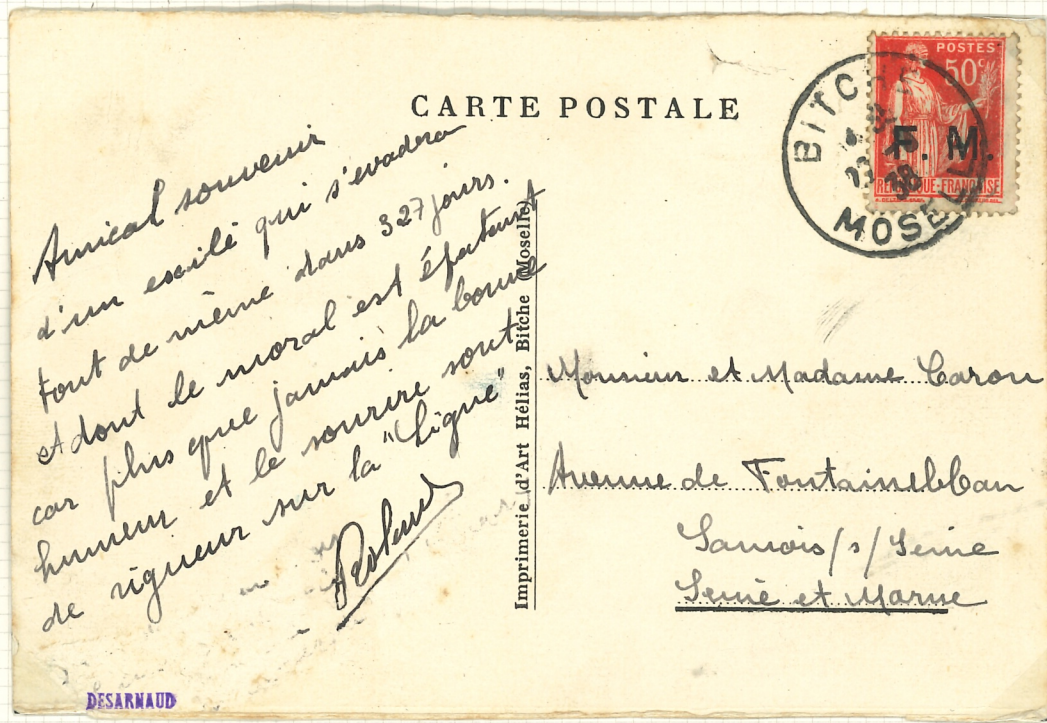 CARTE POSTALE
POSTES
50c
F. M.
REPUBLIQUE-FRANÇAISE
BITCHE
MOSELLE
38
Amical souvenir
d'un exilé qui s'evadera
tout de même dans 327 jours.
et dont le moral est épatant
car plus que jamais la bonne
humeur et le sourire sont
de rigueur sur la "Ligne"
Roland
Imprimerie d'Art Hélias, Bitche (Moselle)
Monsieur et Madame Caron
Avenue de Fontainebleau
Samois/s/Seine
Seine et Marne
DESARNAUD